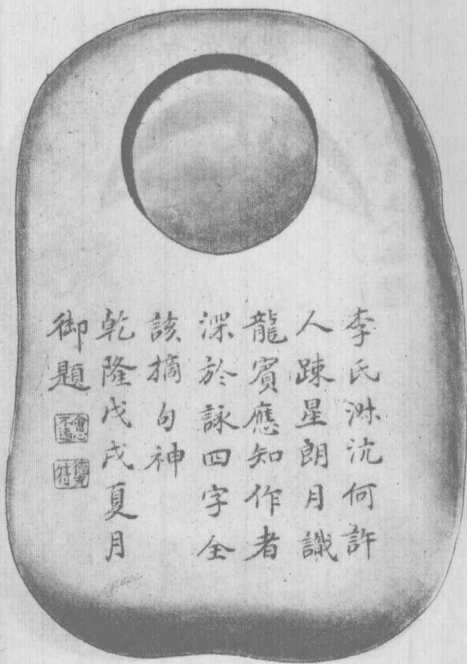 李氏泲沆何許
人踈星朗月識
龍賓應知作者
深於詠四字全
該摘句神
乾隆戊戌夏月
御題
會心不遠
德充符